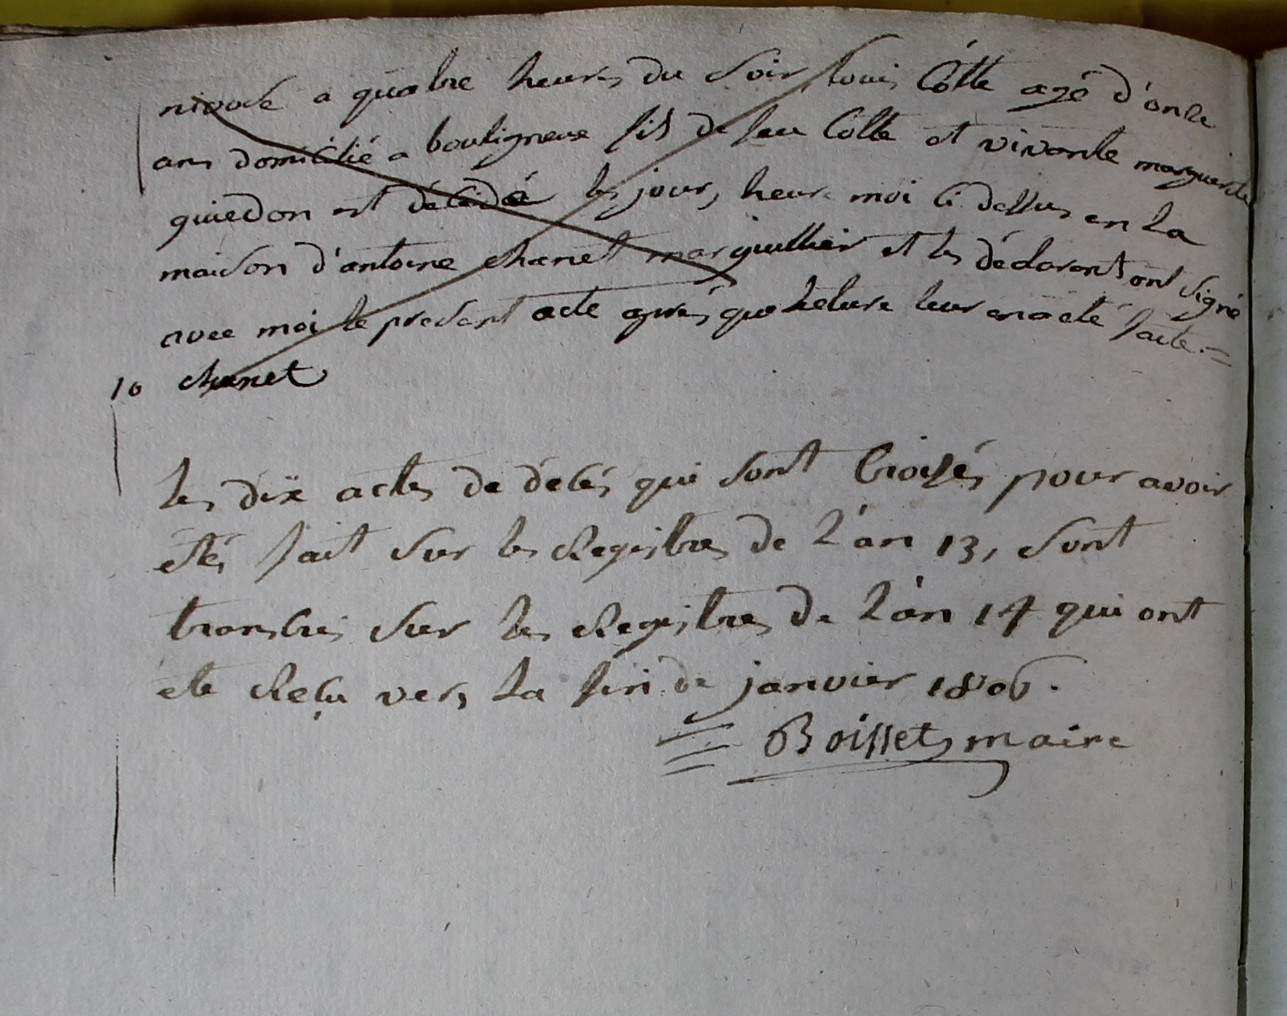 nivose a quatre heures du soir, louis Côtte agé d'onze
ans domicilié a bouligneux fils de feu Cotte et vivante marguerite
guiedon est décédé les jour, heure moi ci dessus en la
maison d'antoine chanet marguillier et les déclarant ont signé
avec moi le present acte après que lecture leur en a eté faite. =
10 chanet
les dix actes de décés qui sont Croisés pour avoir
etés fait sur les Registres de l'an 13, sont
transcris sur les Registres de l'an 14 qui ont
ete Reçu vers la fin de janvier 1806.
Boisset maire